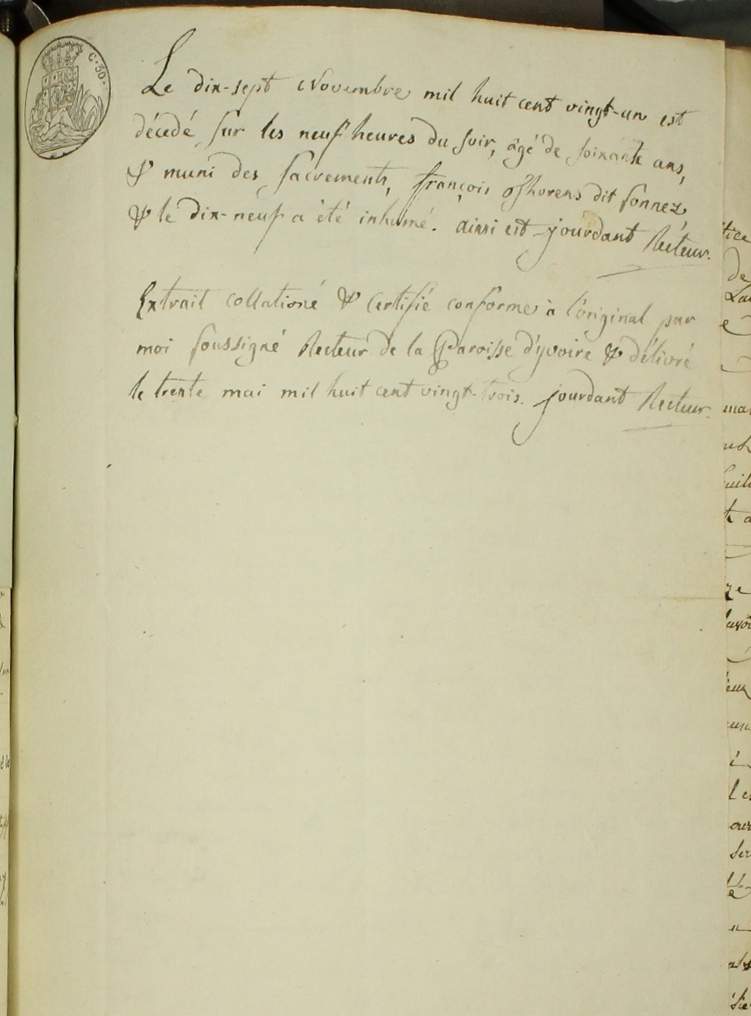 C. 30.
Le dix-sept Novembre mil huit cent vingt-un est
décedé sur les neuf heures du soir, âgé de soixante ans,
& muni des sacrements, françois dit sonnez,
& le dix-neuf a été inhumé. ainsi est jourdant Recteur.
Extrait collationé & certifié conforme à l'original par
moi soussigné Recteur de la Paroisse d'yvoire & délivré
le trente mai mil huit cent vingt-trois. jourdant Recteur.